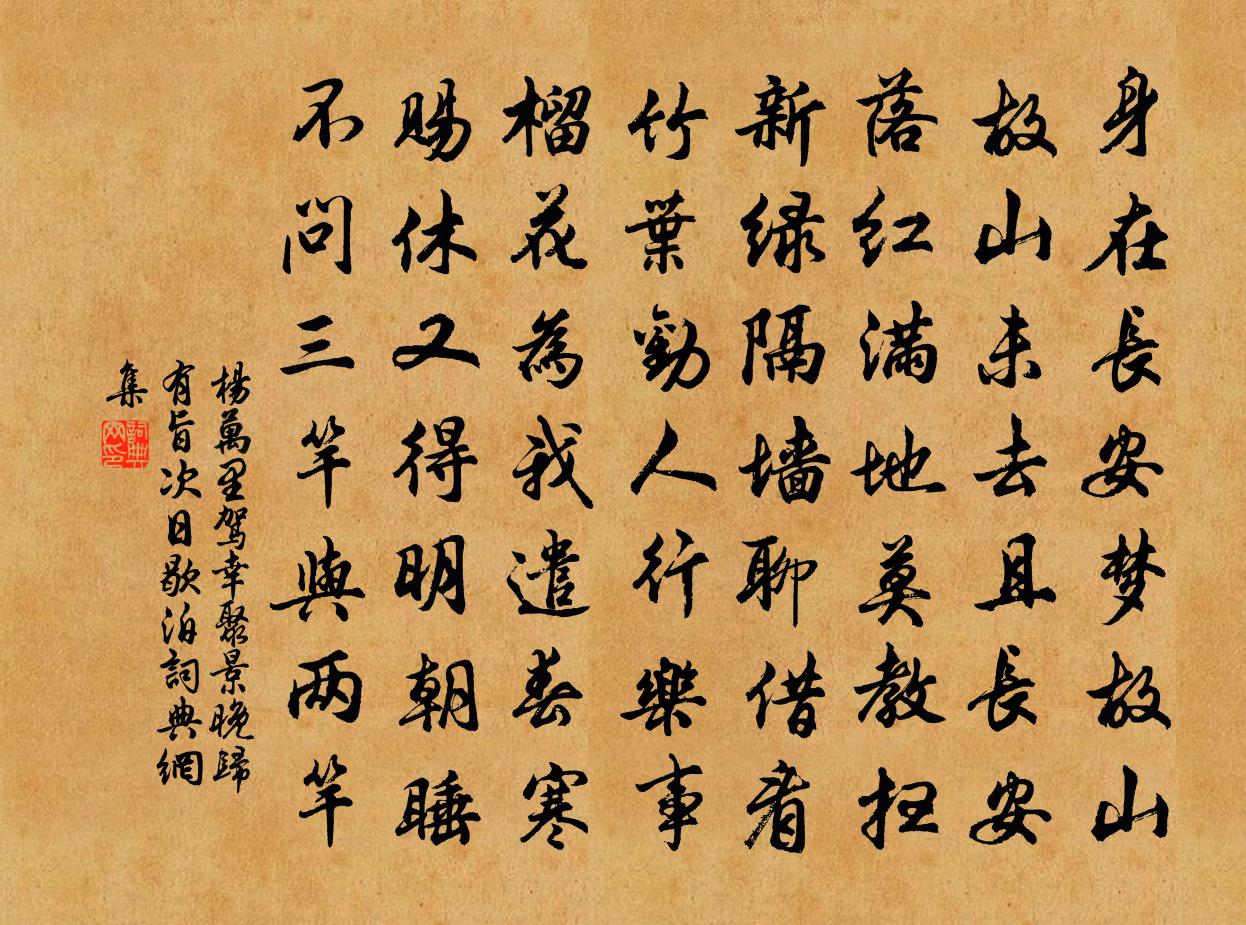 身在長安梦故山
故山未去且長安
落红满地莫教扫
新绿隔墙聊借看
竹葉勸人行樂事
榴花為我遣春寒
賜休又得明朝睡
不问三竿與两竿
楊萬里驾幸聚景晚歸
有旨次日歇泊詞典網
集
詞典网印